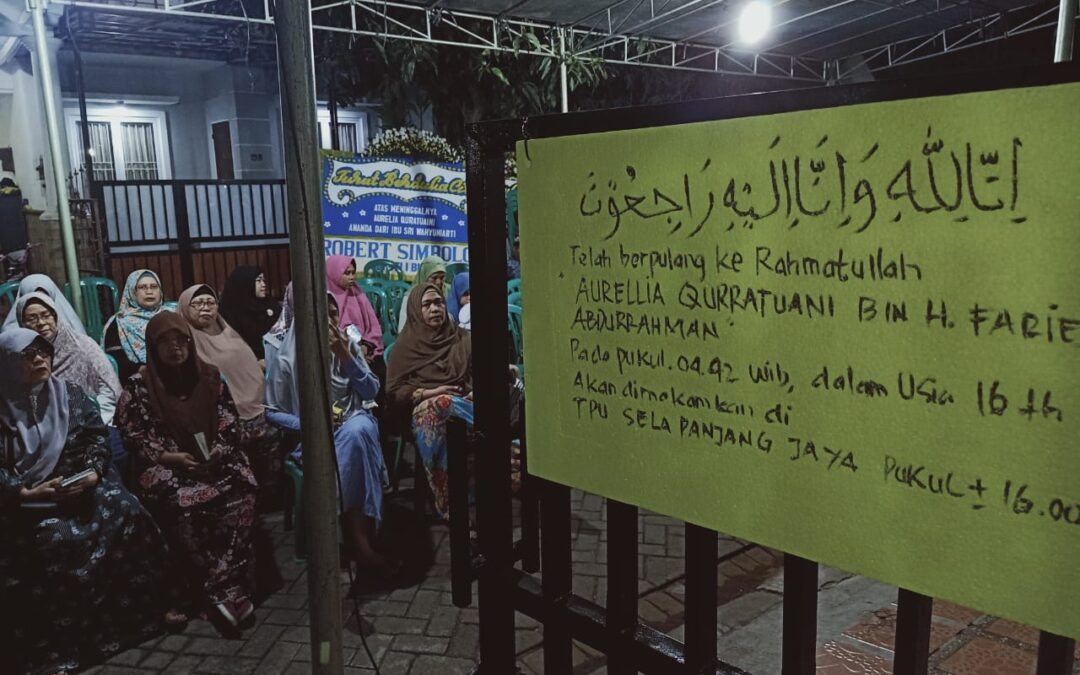 Turut Berdukacita
ATAS MENINGGALNYA
AURELIA QURATUAINI
ANANDA DARI IBU SRI WAHYUNIARTI
ROBERT SIMBOLO
إنا لله وإنا إليه راجعون
Telah berpulang ke Rahmatullah
"AURELLIA QURRATUANI BIN H. FARIE
ABDURRAHMAN"
Pada pukul.04.42 Wib, dalam Usia 16 th
Akan dimakamkan di
TPU SELAPANJANG JAYA PUKUL ± 16.00